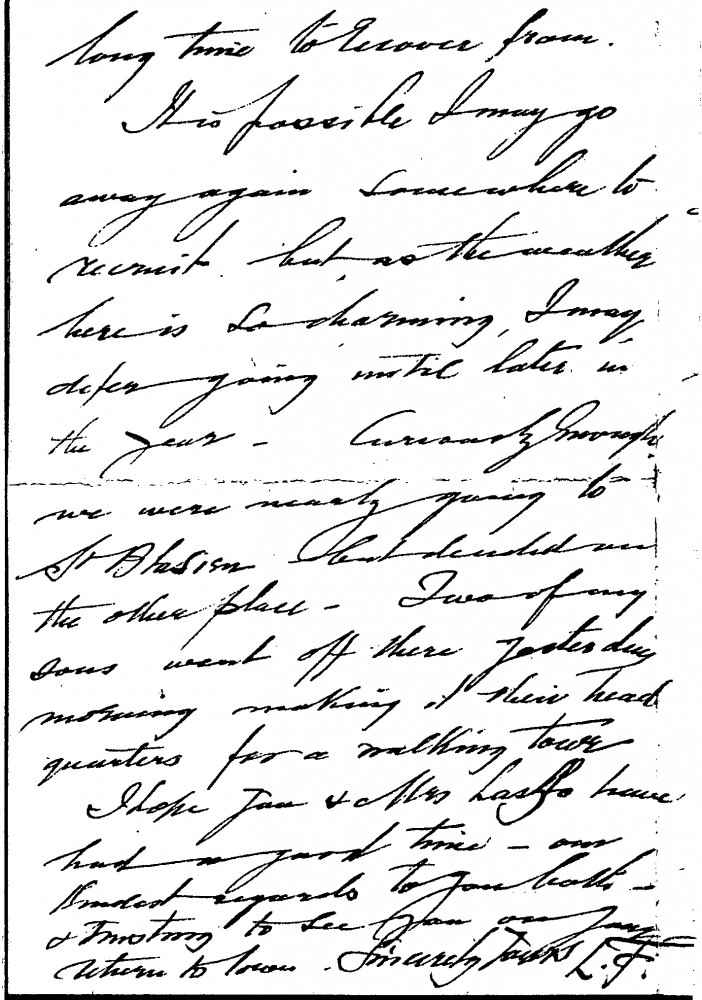 long time to recover from.
It is possible I may go
away again somewhere to
recruit but, as the weather
here is so charming, I may
defer going until later in
the year - Curiously Enough
we were nearly going to
St Blasien but decided on
the other place - Two of my
sons went off there yesterday
morning making it their head
quarters for a walking tour
I hope you & Mrs have
had a good time - our
kindest regards to you both -
& trusting to see you on your
return to town. Sincerely Yours L.F.